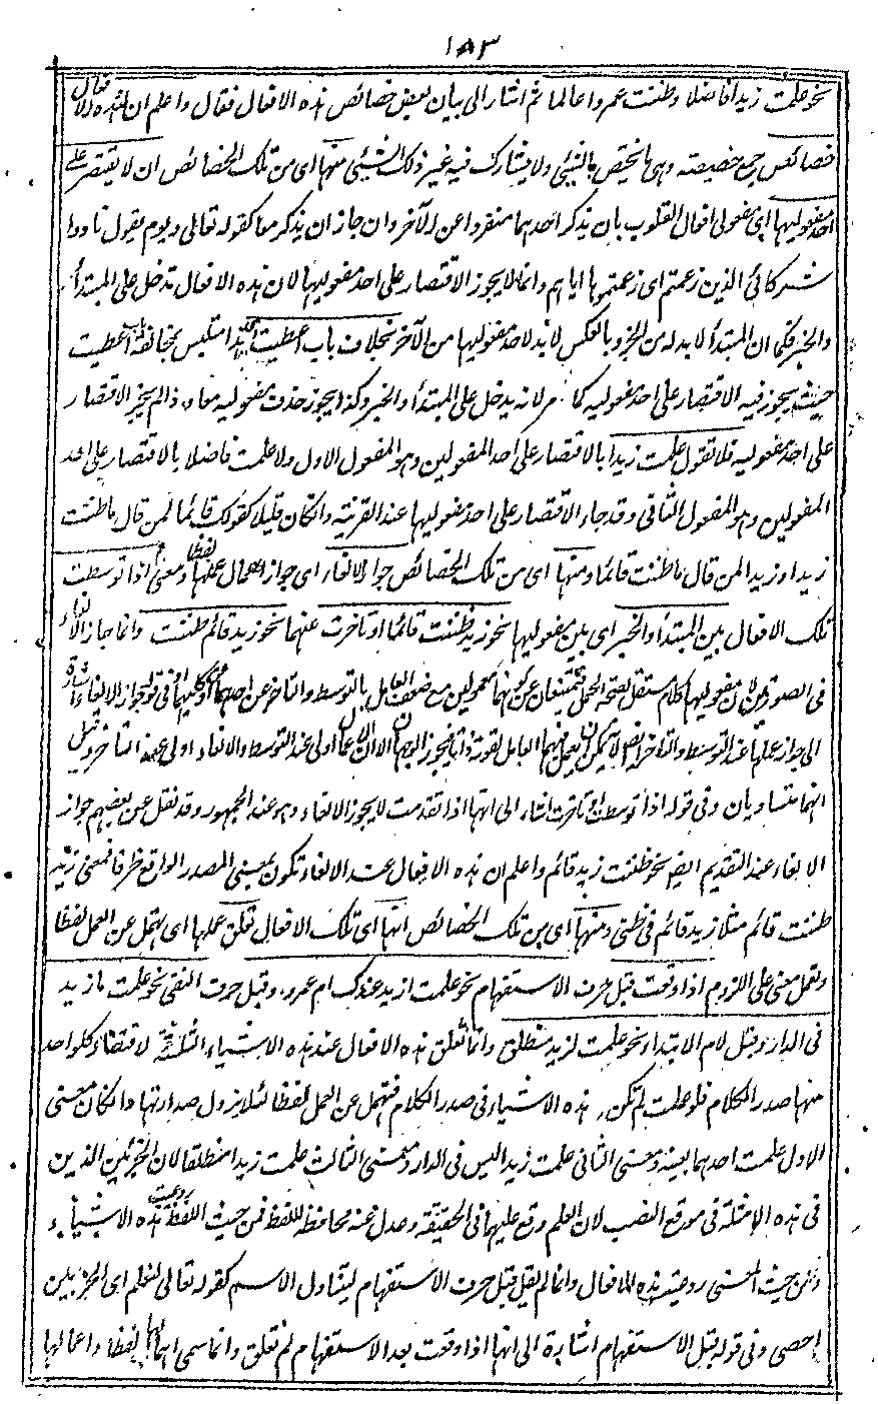 ١٨٣
نحو علمت زيدا فاضلا وظننت عمروا عالما ثم اشار الى بيان بعض خصائص هذه الافعال فقال واعلم ان لهذه الافعال
خصائص جمع خصيصة وهى ما يختص بالشيئ ولا يشارك فيه غير ذلك الشيئ منها اى من تلك الخصائص ان لا يقتصر على
احد مفعوليها اى مفعولى افعال القلوب بان يذكر احدهما منفردا عن الآخر وان جاز ان يذكر معا كقوله تعالى ويوم يقول نادوا
شركائى الذين زعمتم اى زعمتموها اياهم وانما لا يجوز الاقتصار على احد مفعوليها لان هذه الافعال تدخل على المبتدأ
والخبر فكما ان المبتدأ لا بد له من الخبر وبالعكس لا بد لاحد مفعوليها من الآخر بخلاف باب اعطيت هذا متلبس بمخالفة باب اعطيت
حيث يجوز فيه الاقتصار على احد مفعوليه كما مر لانه لا يدخل على المبتدأ والخبر وكذا يجوز حذف مفعوليه معا واذا لم يجز الاقتصار
على احد مفعوليه فلا تقول علمت زيدا بالاقتصار على احد المفعولين وهو المفعول الاول ولا علمت فاضلا بالاقتصار على احد
المفعولين وهو المفعول الثانى وقد جاء الاقتصار على احد مفعوليها عند القرينة وان كان قليلا كقولك قائما لمن قال ما ظننت
زيدا وزيدا لمن قال ما ظننت قائما ومنها اى من تلك الخصائص جواز الالغاء اى جواز اهمال عملها لفظا ومعنى اذا توسطت
تلك الافعال بين المبتدأ والخبر اى بين مفعوليها نحو زيد ظننت قائما او تاخرت عنهما نحو زيد قائم ظننت وانما جاز الالغاء
فى الصورتين لان مفعوليها كلام مستقل لصحة الحمل فيمتنعان عن كونهما معمولين مع ضعف العامل بالتوسط والتاخر عن احدهما او كليهما وفى قوله جواز الالغاء اشارة
الى جواز عملها عند التوسط والتاخر ايضا لانه يمكن ان يعمل فيهما العامل لقوة ذاتها فيجوز الوجهان الا ان الاعمال اولى عند التوسط والالغاء اولى عند التاخر وقيل
انهما متساويان وفى قوله اذا توسطت او تاخرت اشارة الى انها اذا تقدمت لا يجوز الالغاء وهو عند الجمهور وقد نقل عن بعضهم جواز
الالغاء عند التقديم ايضا نحو ظننت زيد قائم واعلم ان هذه الافعال عند الالغاء تكون بمعنى المصدر الواقع ظرفا فمعنى زيد
ظننت قائم مثلا زيد قائم فى ظنى ومنها اى من تلك الخصائص انها اى تلك الافعال تعلق عملها اى تهمل عن العمل لفظا
وتعمل معنى على اللزوم اذا وقعت قبل حرف الاستفهام نحو علمت ازيد عندك ام عمرو وقبل حرف النفى نحو علمت ما زيد
فى الدار وقبل لام الابتداء نحو علمت لزيد منطلق وانما تعلق هذه الافعال عند هذه الاشياء الثلثة لاقتضاء كل واحد
منها صدر الكلام فلو عملت لم تكن هذه الاشياء فى صدر الكلام فتهمل عن العمل لفظا لئلا يزول صدارتها وان كان معنى
الاول علمت احدهما بعينه ومعنى الثانى علمت زيدا ليس فى الدار ومعنى الثالث علمت زيدا منطلقا لان الجزئين الذين
فى هذه الامثلة فى موقع النصب لان العلم وقع عليهما فى الحقيقة وعدل عنه محافظة للفظ فمن حيث اللفظ روعيت هذه الاشياء
ومن حيث المعنى روعيت هذه الافعال وانما لم يقل قبل حرف الاستفهام ليتناول الاسم كقوله تعالى لنعلم اى الحزبين
احصى وفى قوله قبل الاستفهام اشارة الى انها اذا وقعت بعد الاستفهام لم تعلق وانما سمى اهمالها لفظا واعمالها